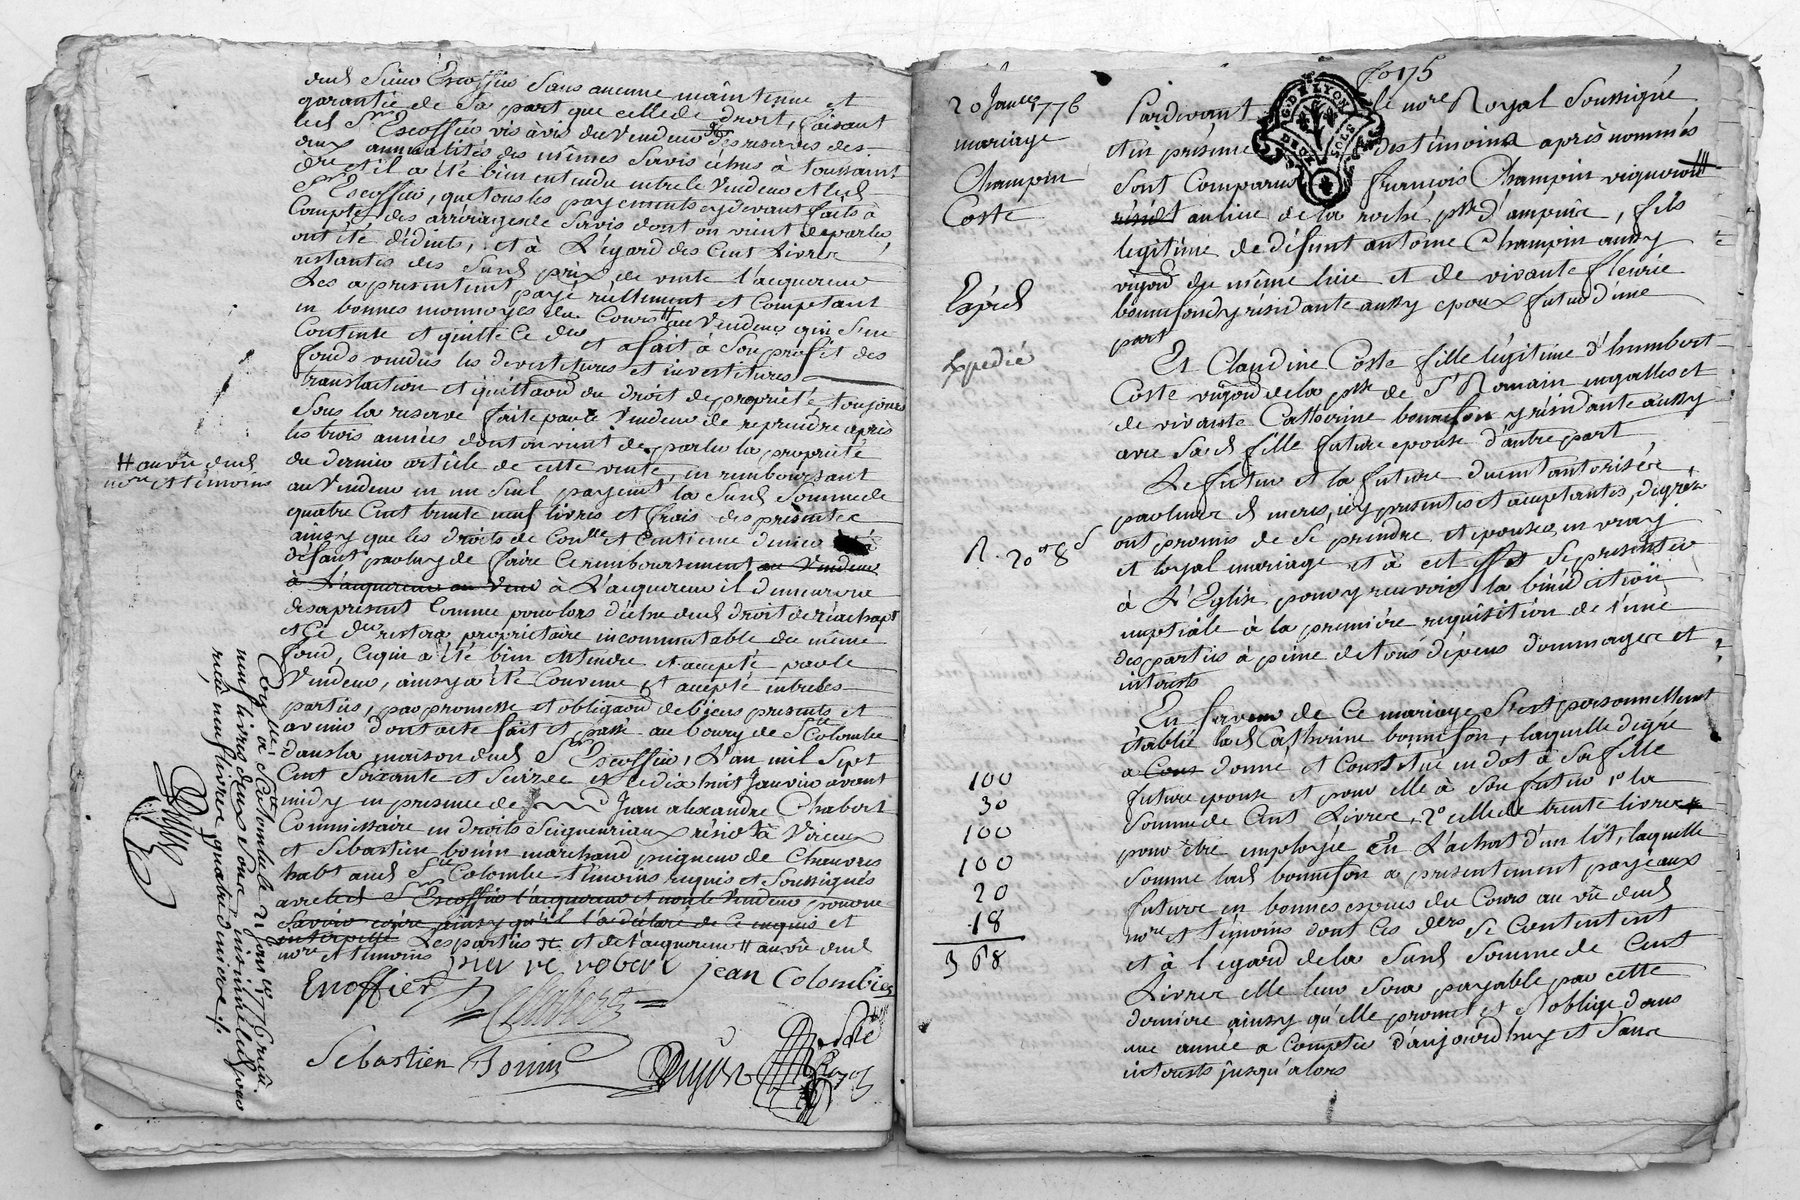 dud Sieur Escoffier Sans aucune maintenue et
garantie de Sa part que celle de droit, faisant
led Sr. Escoffier vis à vis du Vendeur des reserves des
deux annualités des mêmes Servis échus à toussaint
dre et il a été bien entendu entre le Vendeur et led
Sr Escoffier, que tous les payements cydevant faits à
Compte des arrérages de Servis dont on vient de parler
ont été déduits, et à L'égard des Cent Livres
restantes des Susd prix de vente l'acquereur
Les a presentement payé réellement et Comptant
en bonnes monnoyes du Cours au Vendeur qui S'en
Contente et quitte Ce der et a fait à Son profit des
fonds vendus les devestitures et investitures
translation et quittaon du droit de proprieté, toujours
Sous la reserve faite par le Vendeur de reprendre après
les trois années dont on vient de parler la propriété
du dernier article de cette vente, en remboursant
au Vendeur en un Seul payemt la Susd Somme de
quatre Cent trente neuf livres et frais des presentes
ainsy que les droits de Conlle et Centieme denier
défaut par luy de faire Ce remboursement au Vendeur
à L'acquereur au Vend à L'acquereur il demeurera
des apresent Comme pour lors déchu dud droit de réachapt
et Ce der restera proprietaire incommutable du même
fond, Ce qui a été bien entendu et accepté par le
Vendeur, ainsy a été Convenu et accepté entre les
parties, par promesse et obligaon de biens presents et
avenir dont acte fait et passé au bourg de Ste Colombe
dans la maison dud Sr Escoffier, L'an mil Sept
Cent Soixante et Seize et le dix huit Janvier avant
midy en presence de Jean alexandre Chabert
Commissaire en droits Seigneuriaux résidt à Virieux
et Sébastien bonin marchand peigneur de Chanvres
habt aud Ste Colombe temoins requis et Soussignés
avec led Sr Escoffier l'acquereur et non le Vendeur pour ne
Savoir ecrire ainsy qu'il l'a déclaré de Ce enquis et
interpellé Les parties et de l'acquereur # au vû dud
nore et temoins
pierre robert jean Colombier
Escoffier Chabert
Sébastien Bonin
# au vû dud
nore et témoins
Conllé à Ste Colombe le 21 Janvier 1776 reçu
neuf livres deux sous
reçu neuf livres quatre deniers ./.
fo 175
G. DE LYON
DEUX SOLS
20 Janer 1776
mariage
Champin
Coste
Expéd
Expedié
R. 20s 8d
100
30
100
100
20
18
368
Pardevant le nore Royal Soussigné
et en présence des témoins après nommés
Sont Comparus françois Champin vigneron #
résidt au lieu de la roche, psse d'ampuis, fils
legitime de défunt antoine Champin aussy
vigon du même lieu et de vivante fleurie
bonnefond y résidante aussy epoux futur d'une
part
Et Claudine Coste fille légitime d'humbert
Coste vigon de la psse de St Romain en galles et
de vivante Catherine bonnefon y résidante aussy
avec Sad fille future epouse d'autre part
Le futur et la future duemt autorisés
par leurs d meres, icy presentes et acceptantes, de gré
ont promis de Se prendre et epouser en vray
et loyal mariage et à cet effet Se presenter
à L'Eglise pour y recevoir la bénédiction
nuptiale à la première requisition de l'une
des parties à peine de tous dépens dommages et
interests
En faveur de Ce mariage S'est personnellement
établie lad Catherine bonnefon, laquelle de gré
a Cons donné et Constitué en dot à Sa fille
future epouse et pour elle à Son futur 1o la
Somme de Cent Livres, 2o celle de trente livres
pour être employée en L'achat d'un lit, laquelle
Somme lad bonnefon a presentement payé aux
futurs en bonnes especes du Cours au vû dud
nore et témoins dont Ces ders Se Contentent
et à l'egard de la Susd Somme de Cent
Livres elle leur Sera payable par cette
derniere ainsy qu'elle promet et S'oblige dans
une année a Compter d'aujourd'huy et Sans
interests jusqu'alors